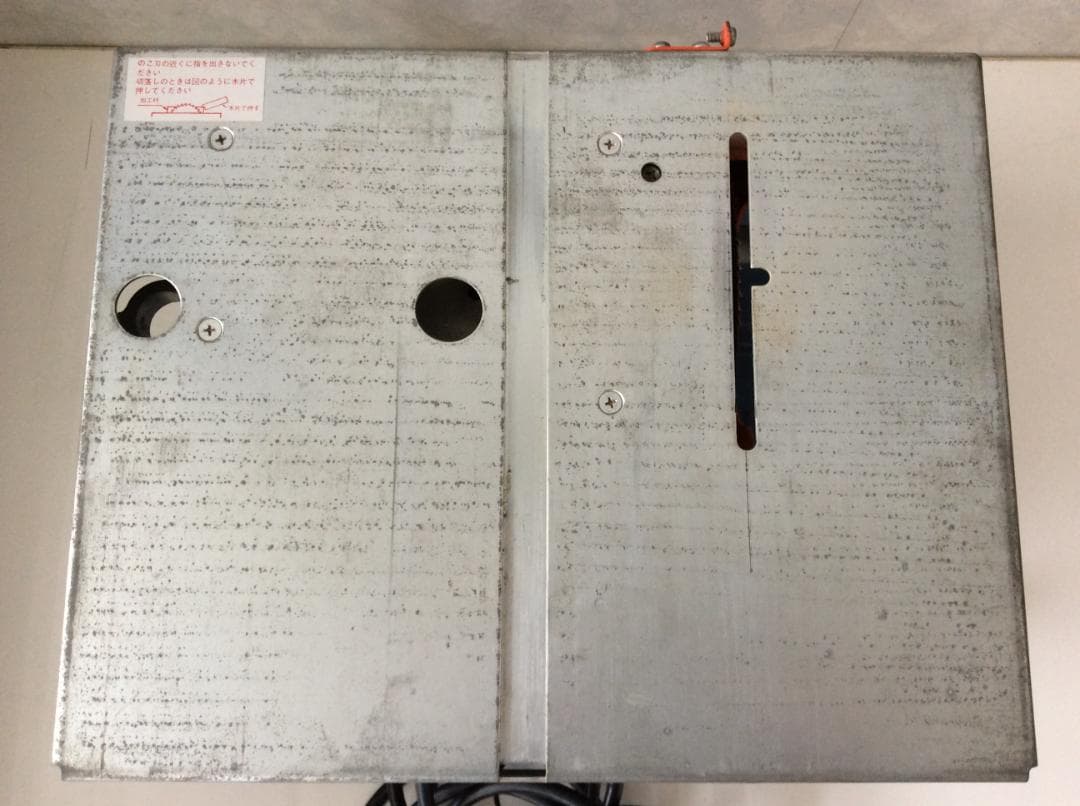 のこ刃の近くに指を出さないでく
ださい
切落しのときは図のように木片で
押してください
加工材
木片で押す